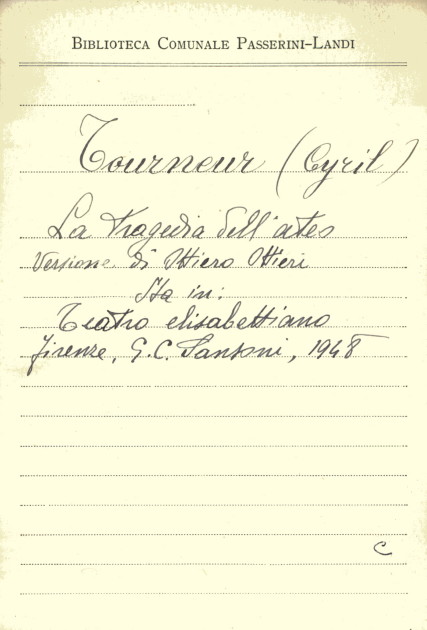 BIBLIOTECA COMUNALE PASSERINI-LANDI
Tourneur (Cyril)
La tragedia dell'ateo
Versione di Ottiero Ottieri
Sta in:
Teatro elisabettiano
Firenze, G.C. Sansoni, 1948
C